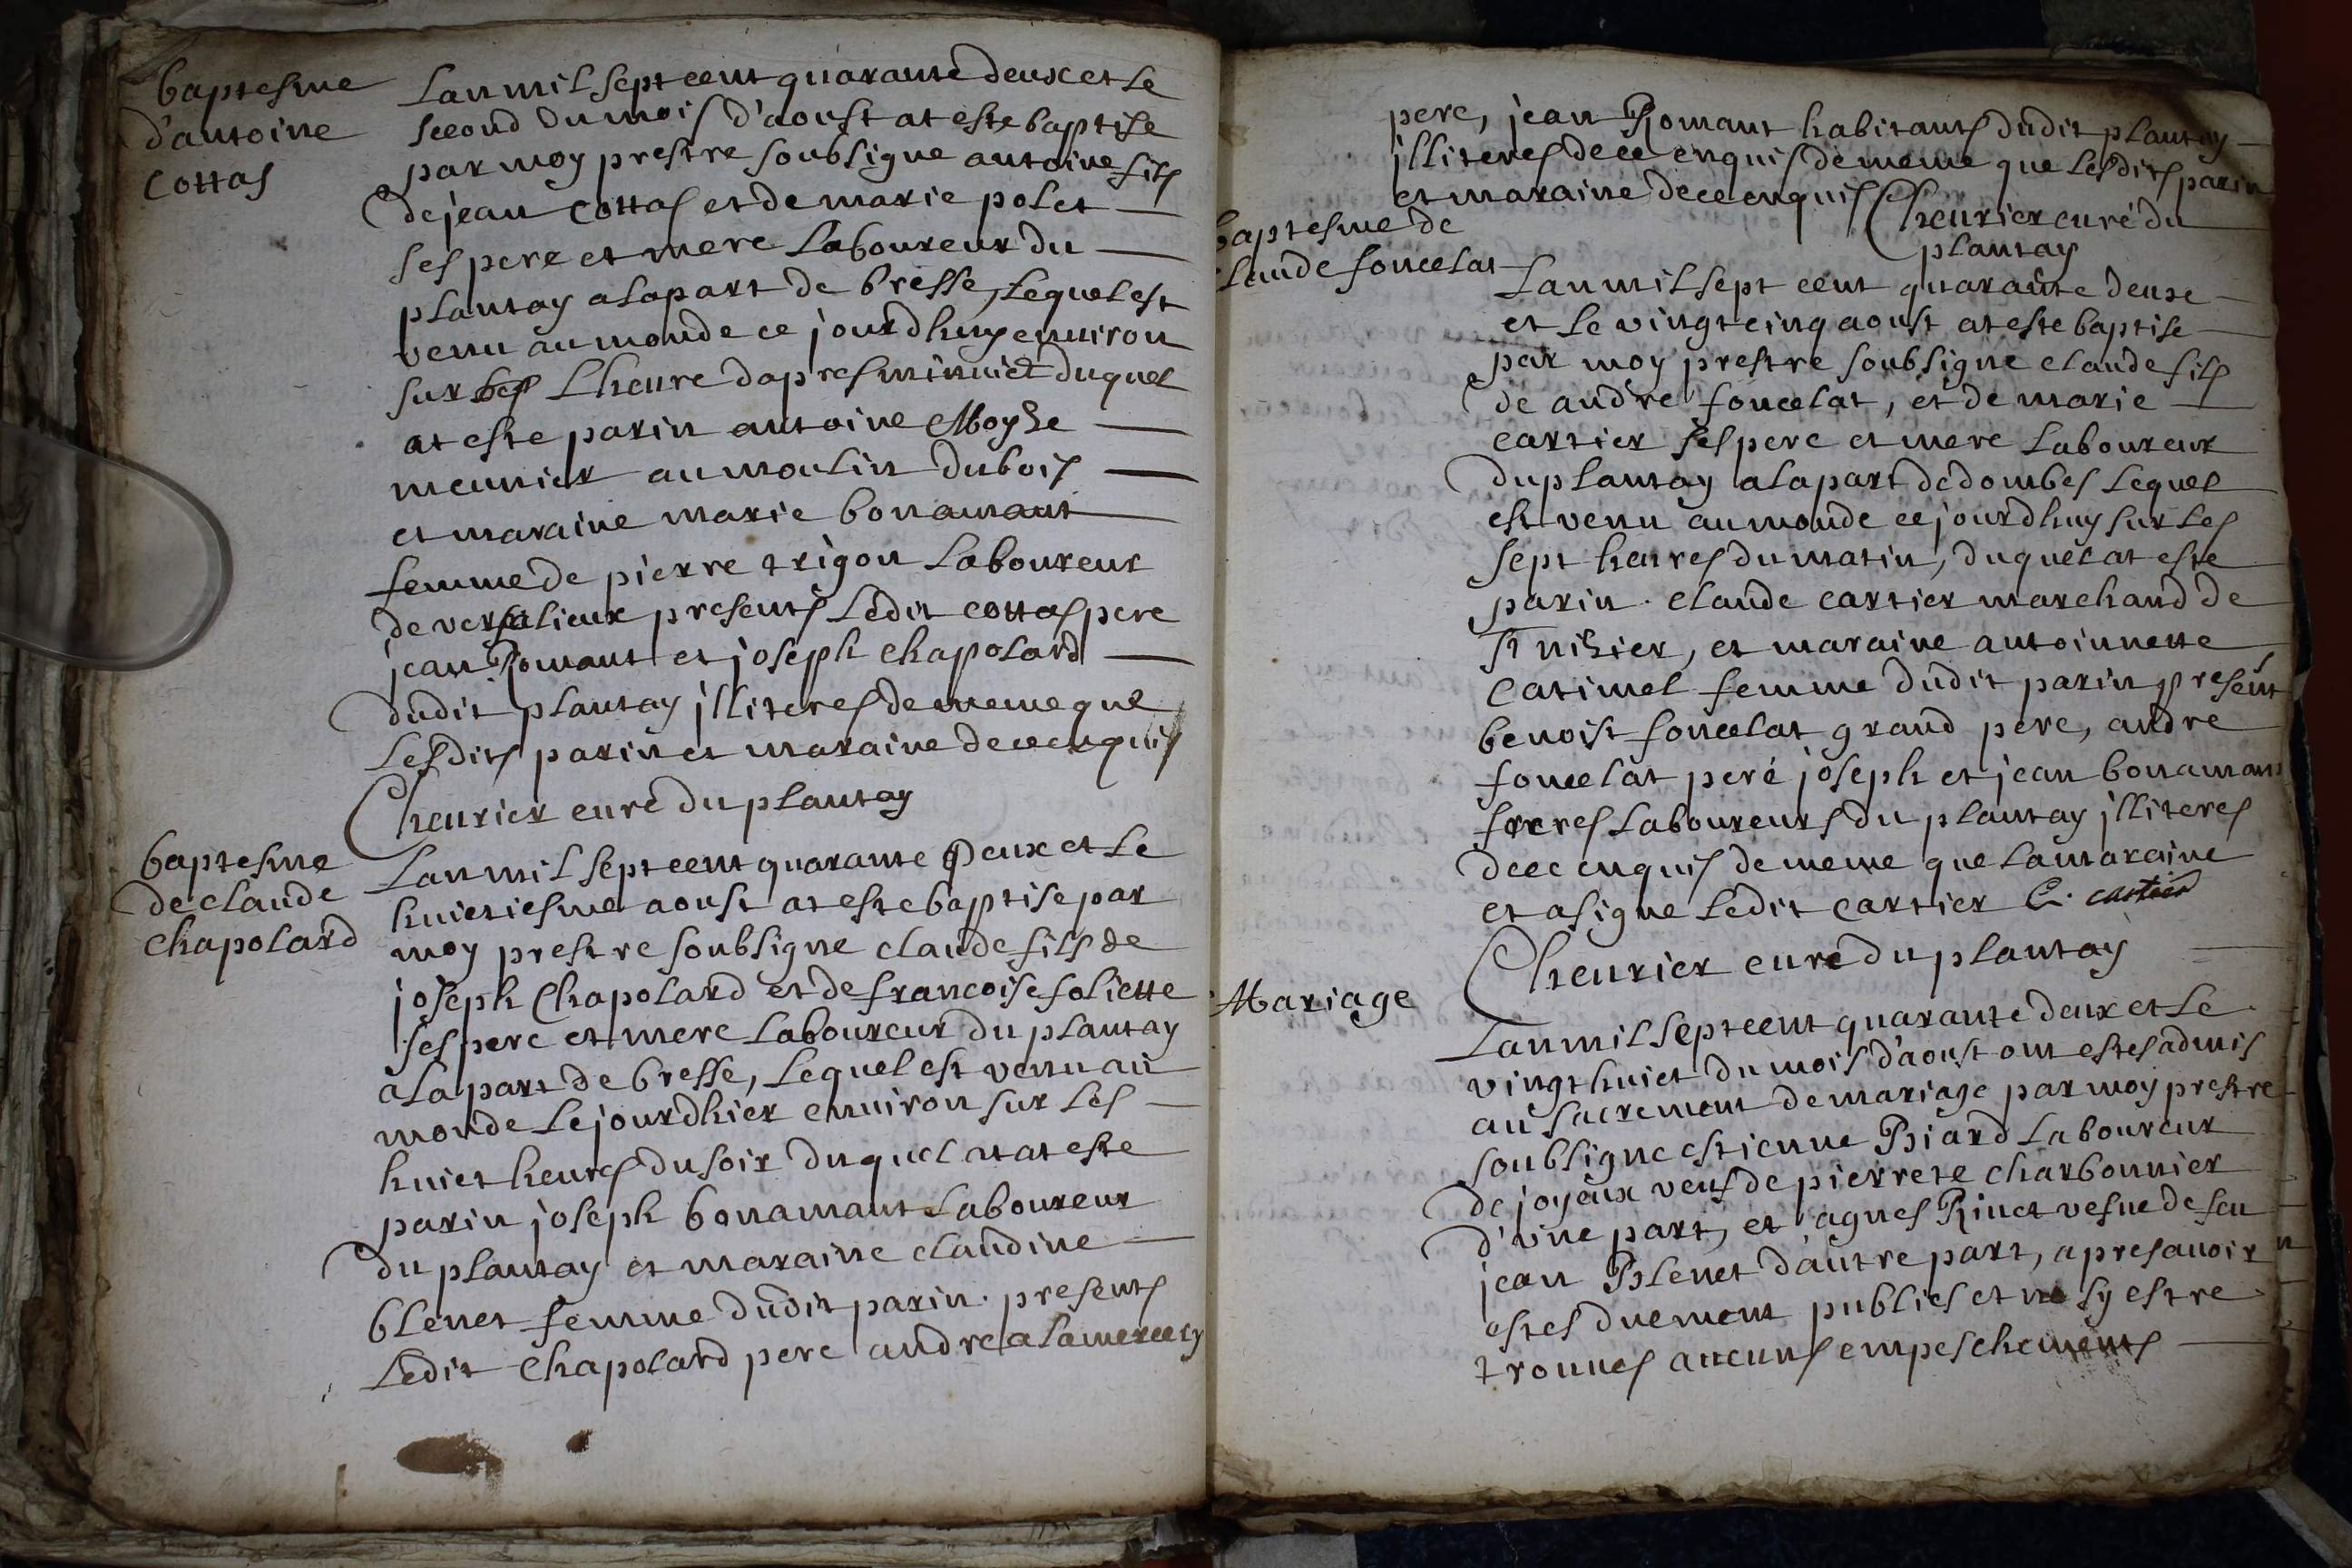 baptesme
d'antoine
Cottas
Lan mil sept cent quarante deux et le
second du mois d'aoust at este baptise
par moy prestre soubsigne antoine fils
de jean Cottas et de marie polet
ses pere et mere Laboureur du
plantay a la part de bresse, Lequel est
venu au monde ce jourdhuy environ
sur Lheure dapres minuict duquel
at este parin antoine Moyze
meunier au moulin du bois
et maraine marie bonamant
femme de pierre trigon Laboureur
de versalieux presents Ledit cottas pere
jean Romant et joseph chapolard
dudit plantay jlliteres de meme que
Lesdits parin et maraine de ce enquis
Cheurier curé du plantay
baptesme
de claude
chapolard
Lan mil sept cent quarante Deux et Le
huictiesme aoust at este baptise par
moy prestre soubsigne claude fils de
joseph Chapolard et de francoise foliette
ses pere et mere Laboureur du plantay
a La part de bresse, Lequel est venu au
monde Le jourdhier enuiron sur Les
huict heures du soir duquel at at este
parin joseph bonamant Laboureur
du plantay et maraine claudine
blenet femme dudit parin. presents
Ledit Chapolard pere andre alamercery
pere, jean Romant habitants dudit plantay
jlliteres de ce enquis de meme que Lesdits parin
et maraine de ce enquis Cheurier curé du
plantay
baptesme de
claude foncelat
Lan mil sept cent quarante deux
et Le vingt cinq aoust at este baptise
par moy prestre soubsigne claude fils
de andre foncelat, et de marie
cartier ses pere et mere Laboureur
du plantay a La part de dombes Lequel
est venu au monde ce jourdhuy sur Les
sept heures du matin, duquel at este
parin. claude cartier marchand de
st nizier, et maraine antoinnette
Catimel femme dudit parin present
benoist foncelat grand pere, andre
foncelat pere joseph et jean bonamant
freres Laboureurs du plantay jlliteres
de ce enquis de meme que La maraine
et a signe Ledit cartier C. cartier
Cheurier curé du plantay
Mariage
Lan mil sept cent quarante deux et Le
vingt huict du mois d'aoust ont estes admis
au sacrement de mariage par moy prestre
soubsigne estienne Piard Laboureur
de joyeux veuf de pierrete charbonnier
d'vne part, et agnes Rinet vefue de feu
jean Blenet d'autre part, apres auoir
estes duement publies et ne sy estre
trouues aucuns empeschements